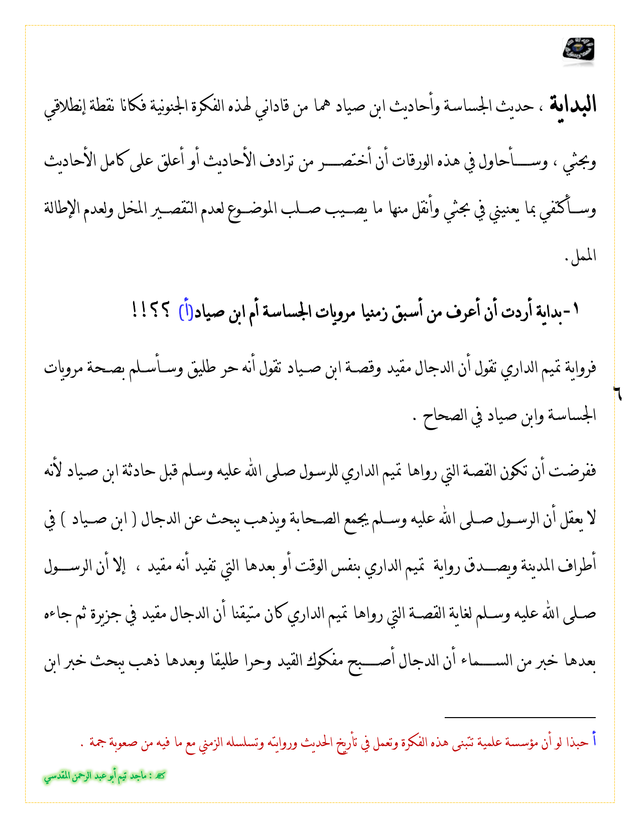 البداية ، حديث الجساسة وأحاديث ابن صياد هما من قاداني لهذه الفكرة الجنونية فكانا نقطة إنطلاقي
وبحثي ، وسأحاول في هذه الورقات أن أختصر من ترادف الأحاديث أو أعلق على كامل الأحاديث
وسأكتفي بما يعنيني في بحثي وأنقل منها ما يصيب صلب الموضوع لعدم التقصير المخل ولعدم الإطالة
الممل .
١-بداية أردت أن أعرف من أسبق زمنيا مرويات الجساسة أم ابن صياد(أ) ؟؟!!
فرواية تميم الداري تقول أن الدجال مقيد وقصة ابن صياد تقول أنه حر طليق وسأسلم بصحة مرويات
الجساسة وابن صياد في الصحاح .
٦
ففرضت أن تكون القصة التي رواها تميم الداري للرسول صلى الله عليه وسلم قبل حادثة ابن صياد لأنه
لا يعقل أن الرسول صلى الله عليه وسلم يجمع الصحابة ويذهب يبحث عن الدجال ( ابن صياد ) في
أطراف المدينة ويصدق رواية تميم الداري بنفس الوقت أو بعدها التي تفيد أنه مقيد ، إلا أن الرسول
صلى الله عليه وسلم لغاية القصة التي رواها تميم الداري كان متيقنا أن الدجال مقيد في جزيرة ثم جاءه
بعدها خبر من السماء أن الدجال أصبح مفكوك القيد وحرا طليقا وبعدها ذهب يبحث خبر ابن
أ حبذا لو أن مؤسسة علمية تتبنى هذه الفكرة وتعمل في تأريخ الحديث وروايته وتسلسله الزمني مع ما فيه من صعوبة جمة .
كتبه : ماجد تيم أبو عبد الرحمن المقدسي